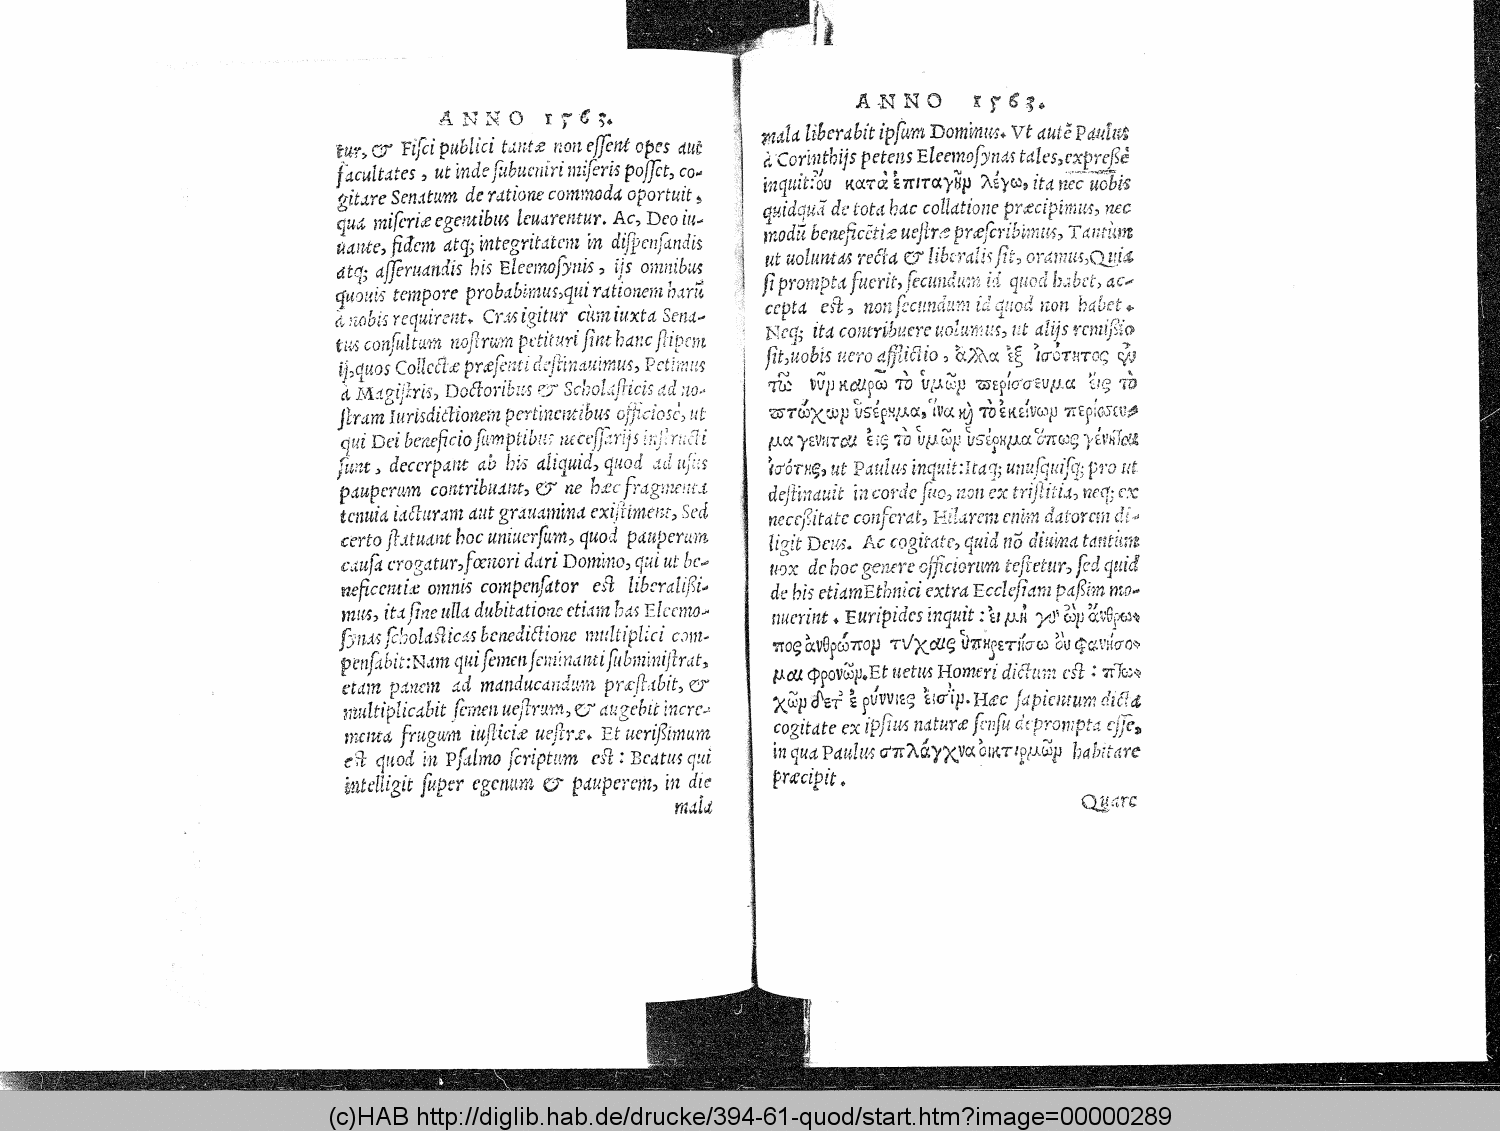 ANNO 1563.
tur, & Fisci publici tantæ non essent opes aut
facultates, ut inde subueniri miseris posset, co-
gitare Senatum de ratione commoda oportuit,
qua miseriæ egentibus leuarentur. Ac, Deo iu-
uante, fidem atq; integritatem in dispensandis
atq; asseruandis his Eleemosynis, ijs omnibus
quouis tempore probabimus, qui rationem harũ
à nobis requirent. Cras igitur cùm iuxta Sena-
tus consultum nostrum petituri sint hanc stipem
ij, quos Collectæ præsenti destinauimus, Petimus
à Magistris, Doctoribus & Scholasticis ad no-
stram Iurisdictionem pertinentibus officiosè, ut
qui Dei beneficio sumptibus necessarijs instructi
sunt, decerpant ab his aliquid, quod ad usus
pauperum contribuant, & ne hæc fragmenta
tenuia iacturam aut grauamina existiment, Sed
certo statuant hoc uniuersum, quod pauperum
causa erogatur, fœnori dari Domino, qui ut be-
neficentiæ omnis compensator est liberalißi-
mus, ita sine ulla dubitatione etiam has Eleemo-
synas scholasticas benedictione multiplici com-
pensabit: Nam qui semen seminanti subministrat,
etam panem ad manducandum præstabit, &
multiplicabit semen uestrum, & augebit incre-
menta frugum iusticiæ uestræ. Et uerißimum
est quod in Psalmo scriptum est: Beatus qui
intelligit super egenum & pauperem, in die
mala
ANNO 1563.
mala liberabit ipsum Dominus. Vt autẽ Paulus
à Corinthijs petens Eleemosynas tales, expreßè
inquit: οὐ κατὰ ἐπιταγὴν λέγω, ita nec uobis
quidquã de tota hac collatione præcipimus, nec
modũ beneficẽtiæ uestræ præscribimus, Tantùm
ut uoluntas recta & liberalis sit, oramus, Quia
si prompta fuerit, secundum id quod habet, ac-
cepta est, non secundum id quod non habet.
Neq; ita contribuere uolumus, ut alijs remißio
sit, uobis uero afflictio, ἀλλα ἐξ ἰσότητος ἐν
τῶ νῦν καιρῶ τὸ ὑμῶν περίσσευμα εἰς τὸ
πτώχων ὑστέρημα, ἵνα καὶ τὸ ἐκείνων περίσσευ-
μα γενηται εἰς τὸ ὑμῶν ὑστέρημα ὅπως γένηται
ἰσότης, ut Paulus inquit: Itaq; unusquisq; pro ut
destinauit in corde suo, non ex tristitia, neq; ex
neceßitate conferat, Hilarem enim datorem di-
ligit Deus. Ac cogitate, quid nõ diuina tantum
uox de hoc genere officiorum testetur, sed quid
de his etiam Ethnici extra Ecclesiam paßim mo-
nuerint. Euripides inquit: εἰ μὴ γὰρ ὢν ἄνθρω-
πος ἀνθρώπον τύχαις ὑπηρετήσω οὐ φανήσο-
μαι φρονῶν. Et uetus Homeri dictum est: πτω-
χῶν δέτ᾽ ἐρύννιες εἰσὶν. Hæc sapientum dicta
cogitate ex ipsius naturæ sensu deprompta esse,
in qua Paulus σπλάγχνα οἰκτιρμῶν habitare
præcipit.
Quare
(c)HAB http://diglib.hab.de/drucke/394-61-quod/start.htm?image=00000289